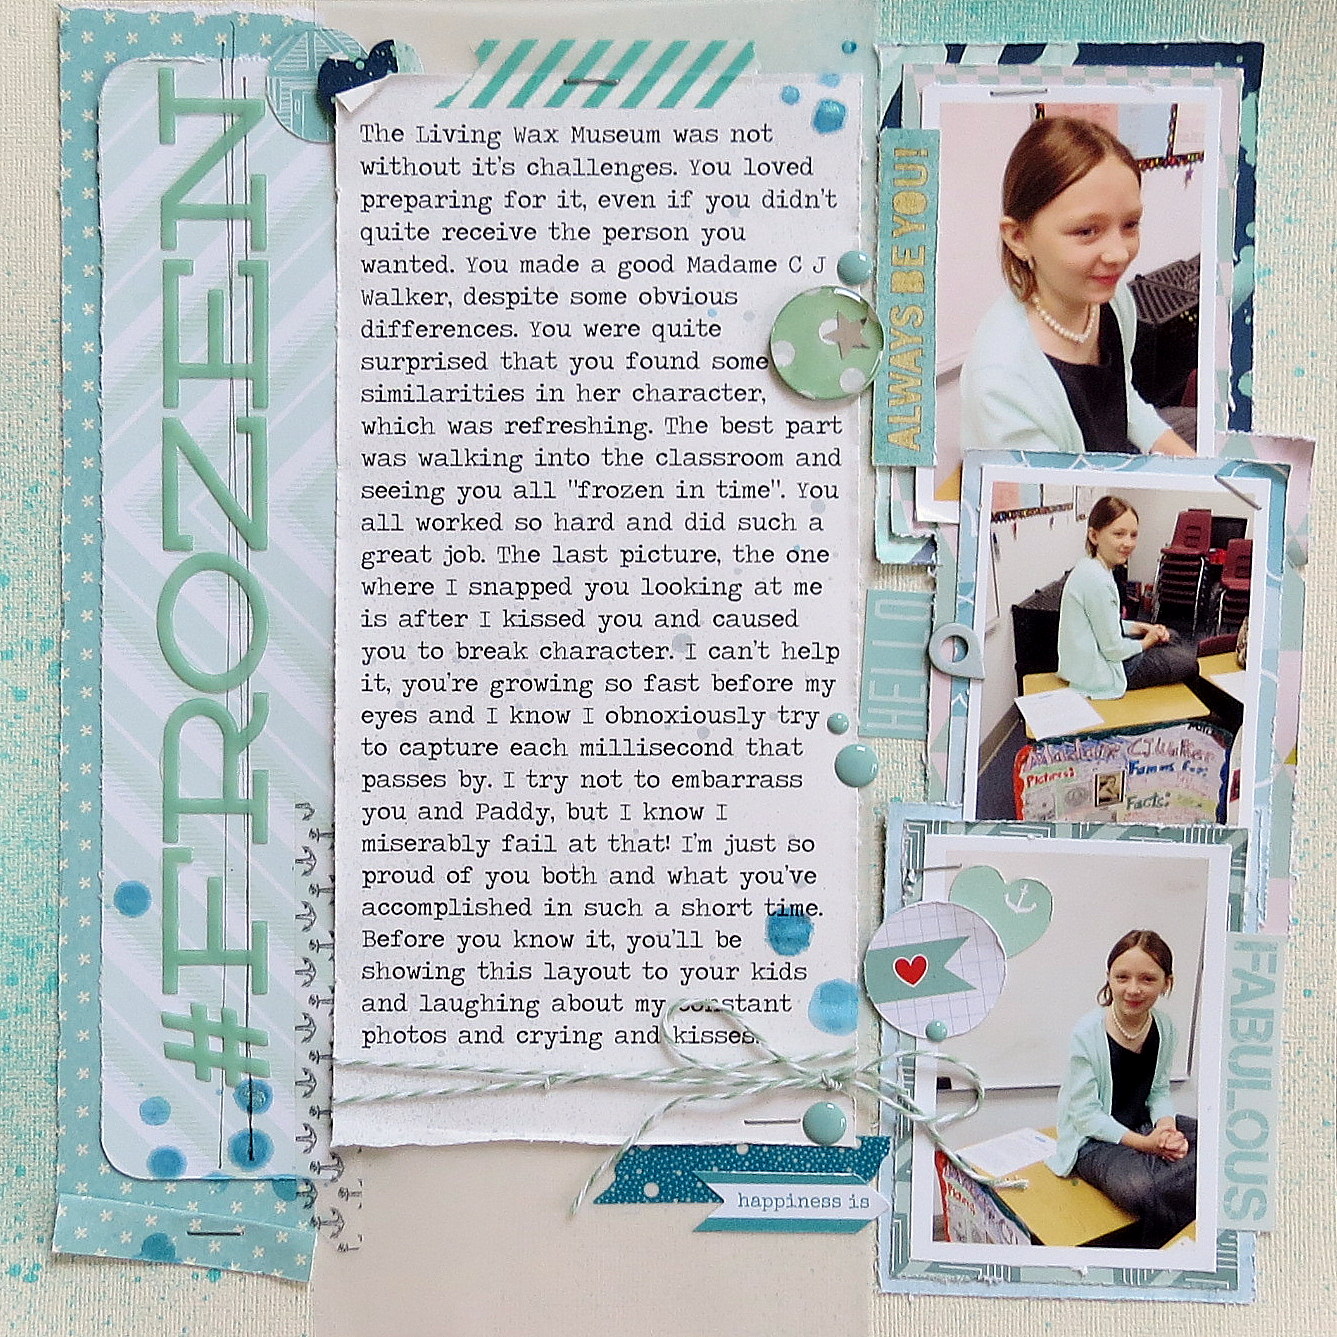 #FROZEN
The Living Wax Museum was not
without it's challenges. You loved
preparing for it, even if you didn't
quite receive the person you
wanted. You made a good Madame C J
Walker, despite some obvious
differences. You were quite
surprised that you found some
similarities in her character,
which was refreshing. The best part
was walking into the classroom and
seeing you all "frozen in time". You
all worked so hard and did such a
great job. The last picture, the one
where I snapped you looking at me
is after I kissed you and caused
you to break character. I can't help
it, you're growing so fast before my
eyes and I know I obnoxiously try
to capture each millisecond that
passes by. I try not to embarrass
you and Paddy, but I know I
miserably fail at that! I'm just so
proud of you both and what you've
accomplished in such a short time.
Before you know it, you'll be
showing this layout to your kids
and laughing about my constant
photos and crying and kisses.
happiness is
ALWAYS BE YOU!
HELLO
C.J. Walker
Pictures:
Famous for:
Facts:
FABULOUS